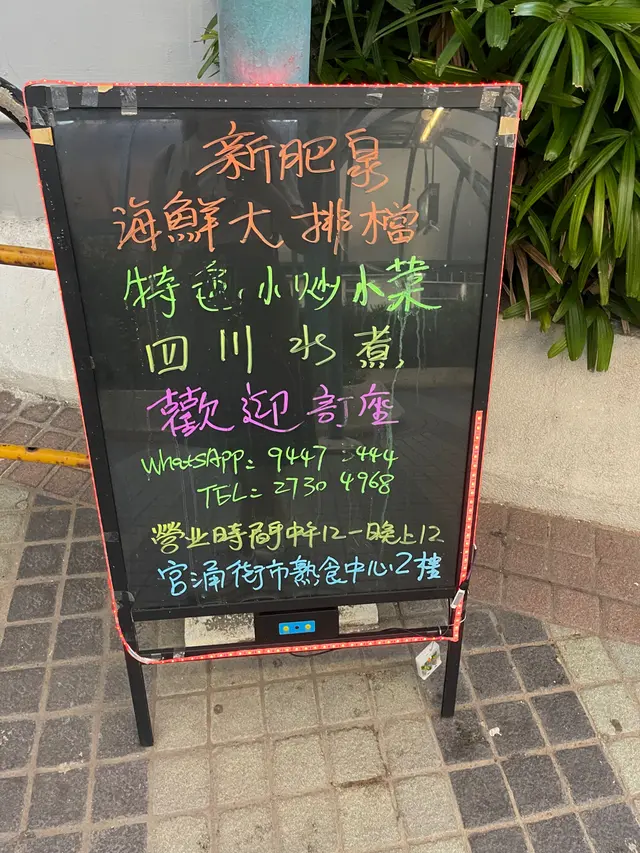 新肥泉
海鮮大排檔
特色小炒小菜
四川水煮
歡迎訂座
WhatsAPP: 9447 444
TEL: 2730 4968
營业時間中午12-晚上12
官涌街市熟食中心2樓